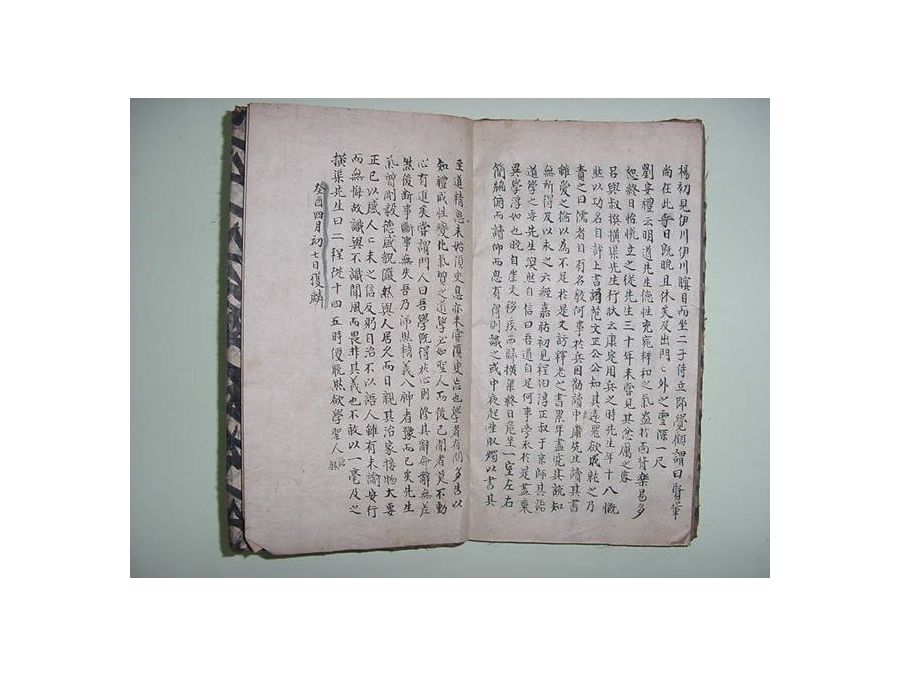 楊初見伊川伊川瞑目而坐二子侍立既覺顧謂曰賢輩
尚在此乎日既晚且休矣及出門〻外之雪深一尺
劉安禮云明道先生德性充完粹和之氣盎於面背樂易多
恕終日怡悅立之從先生三十年未嘗見其忿厲之容
呂與叔撰橫渠先生行狀云康定用兵之時先生年十八慨
然以功名自許上書謁范文正公公知其遠器欲成就之乃
責之曰儒者自有名敎何事於兵因勸讀中庸先生讀其書
雖愛之猶以為不足於是又訪釋老之書累年盡究其說知
無所得反以求之六經嘉祐初見程伯淳正叔于京師共語
道學之要先生渙然自信曰吾道自足何事旁求於是盡棄
異學淳如也晚自崖文移疾西歸橫渠終日危坐一室左右
簡編俯而讀仰而思有得則識之或中夜起坐取燭以書其
至道精思未始須臾息亦未嘗須臾忘也學者有問多告以
知禮成性變化氣質之道學必如聖人而後已聞者莫不動
心有進矣嘗謂門人曰吾學既得於心則修其辭命辭無差
然後斷事斷事無失吾乃沛然精義入神者豫而已矣先生
氣質剛毅德盛貌嚴然與人居久而日親其治家接物大要
正己以感人人未之信反躬自治不以語人雖有未諭安行
而無悔故識與不識聞風而畏非其義也不敢以一毫及之
橫渠先生曰二程從十四五時便脫然欲學聖人
癸酉四月初七日獲麟